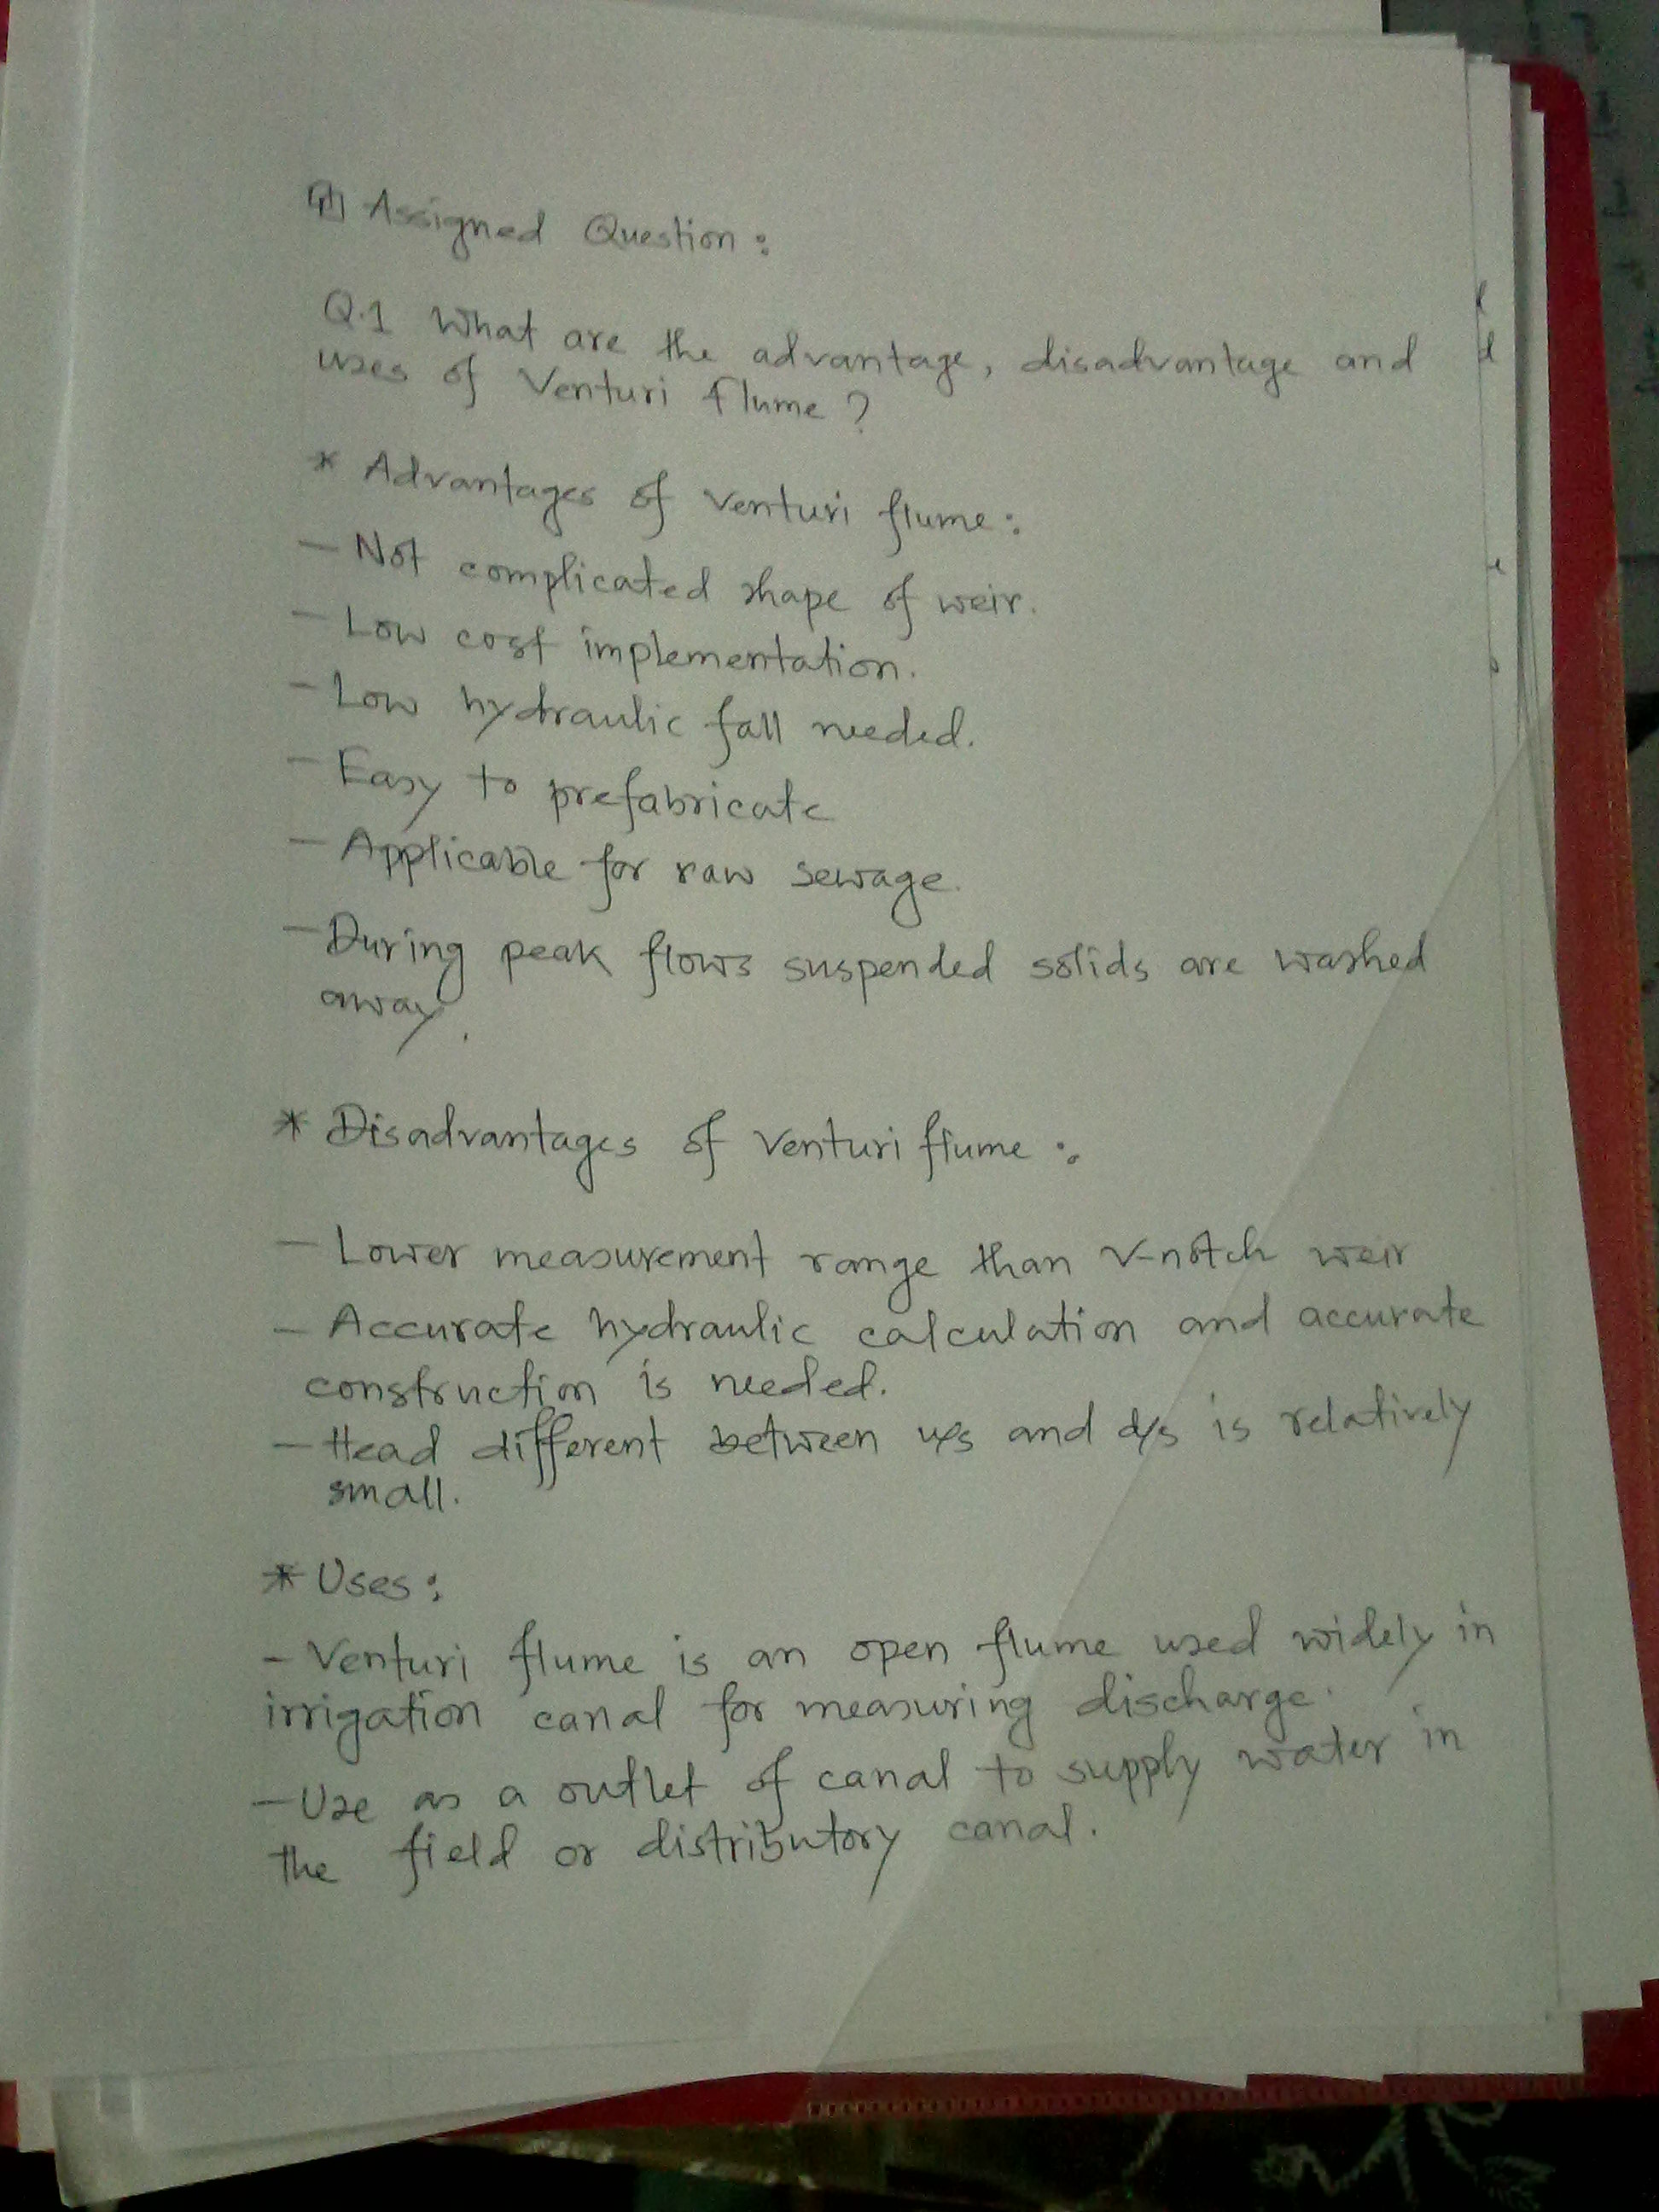 Assigned Question:
Q.1 What are the advantage, disadvantage and
uses of Venturi flume?
* Advantages of Venturi flume:
- Not complicated shape of weir.
- Low cost implementation.
- Low hydraulic fall needed.
- Easy to prefabricate
- Applicable for raw sewage.
- During peak flows suspended solids are washed
away.
* Disadvantages of Venturi flume:
- Lower measurement range than V-notch weir
- Accurate hydraulic calculation and accurate
construction is needed.
- Head different between u/s and d/s is relatively
small.
* Uses:
- Venturi flume is an open flume used widely in
irrigation canal for measuring discharge.
- Use as a outlet of canal to supply water in
the field or distributory canal.